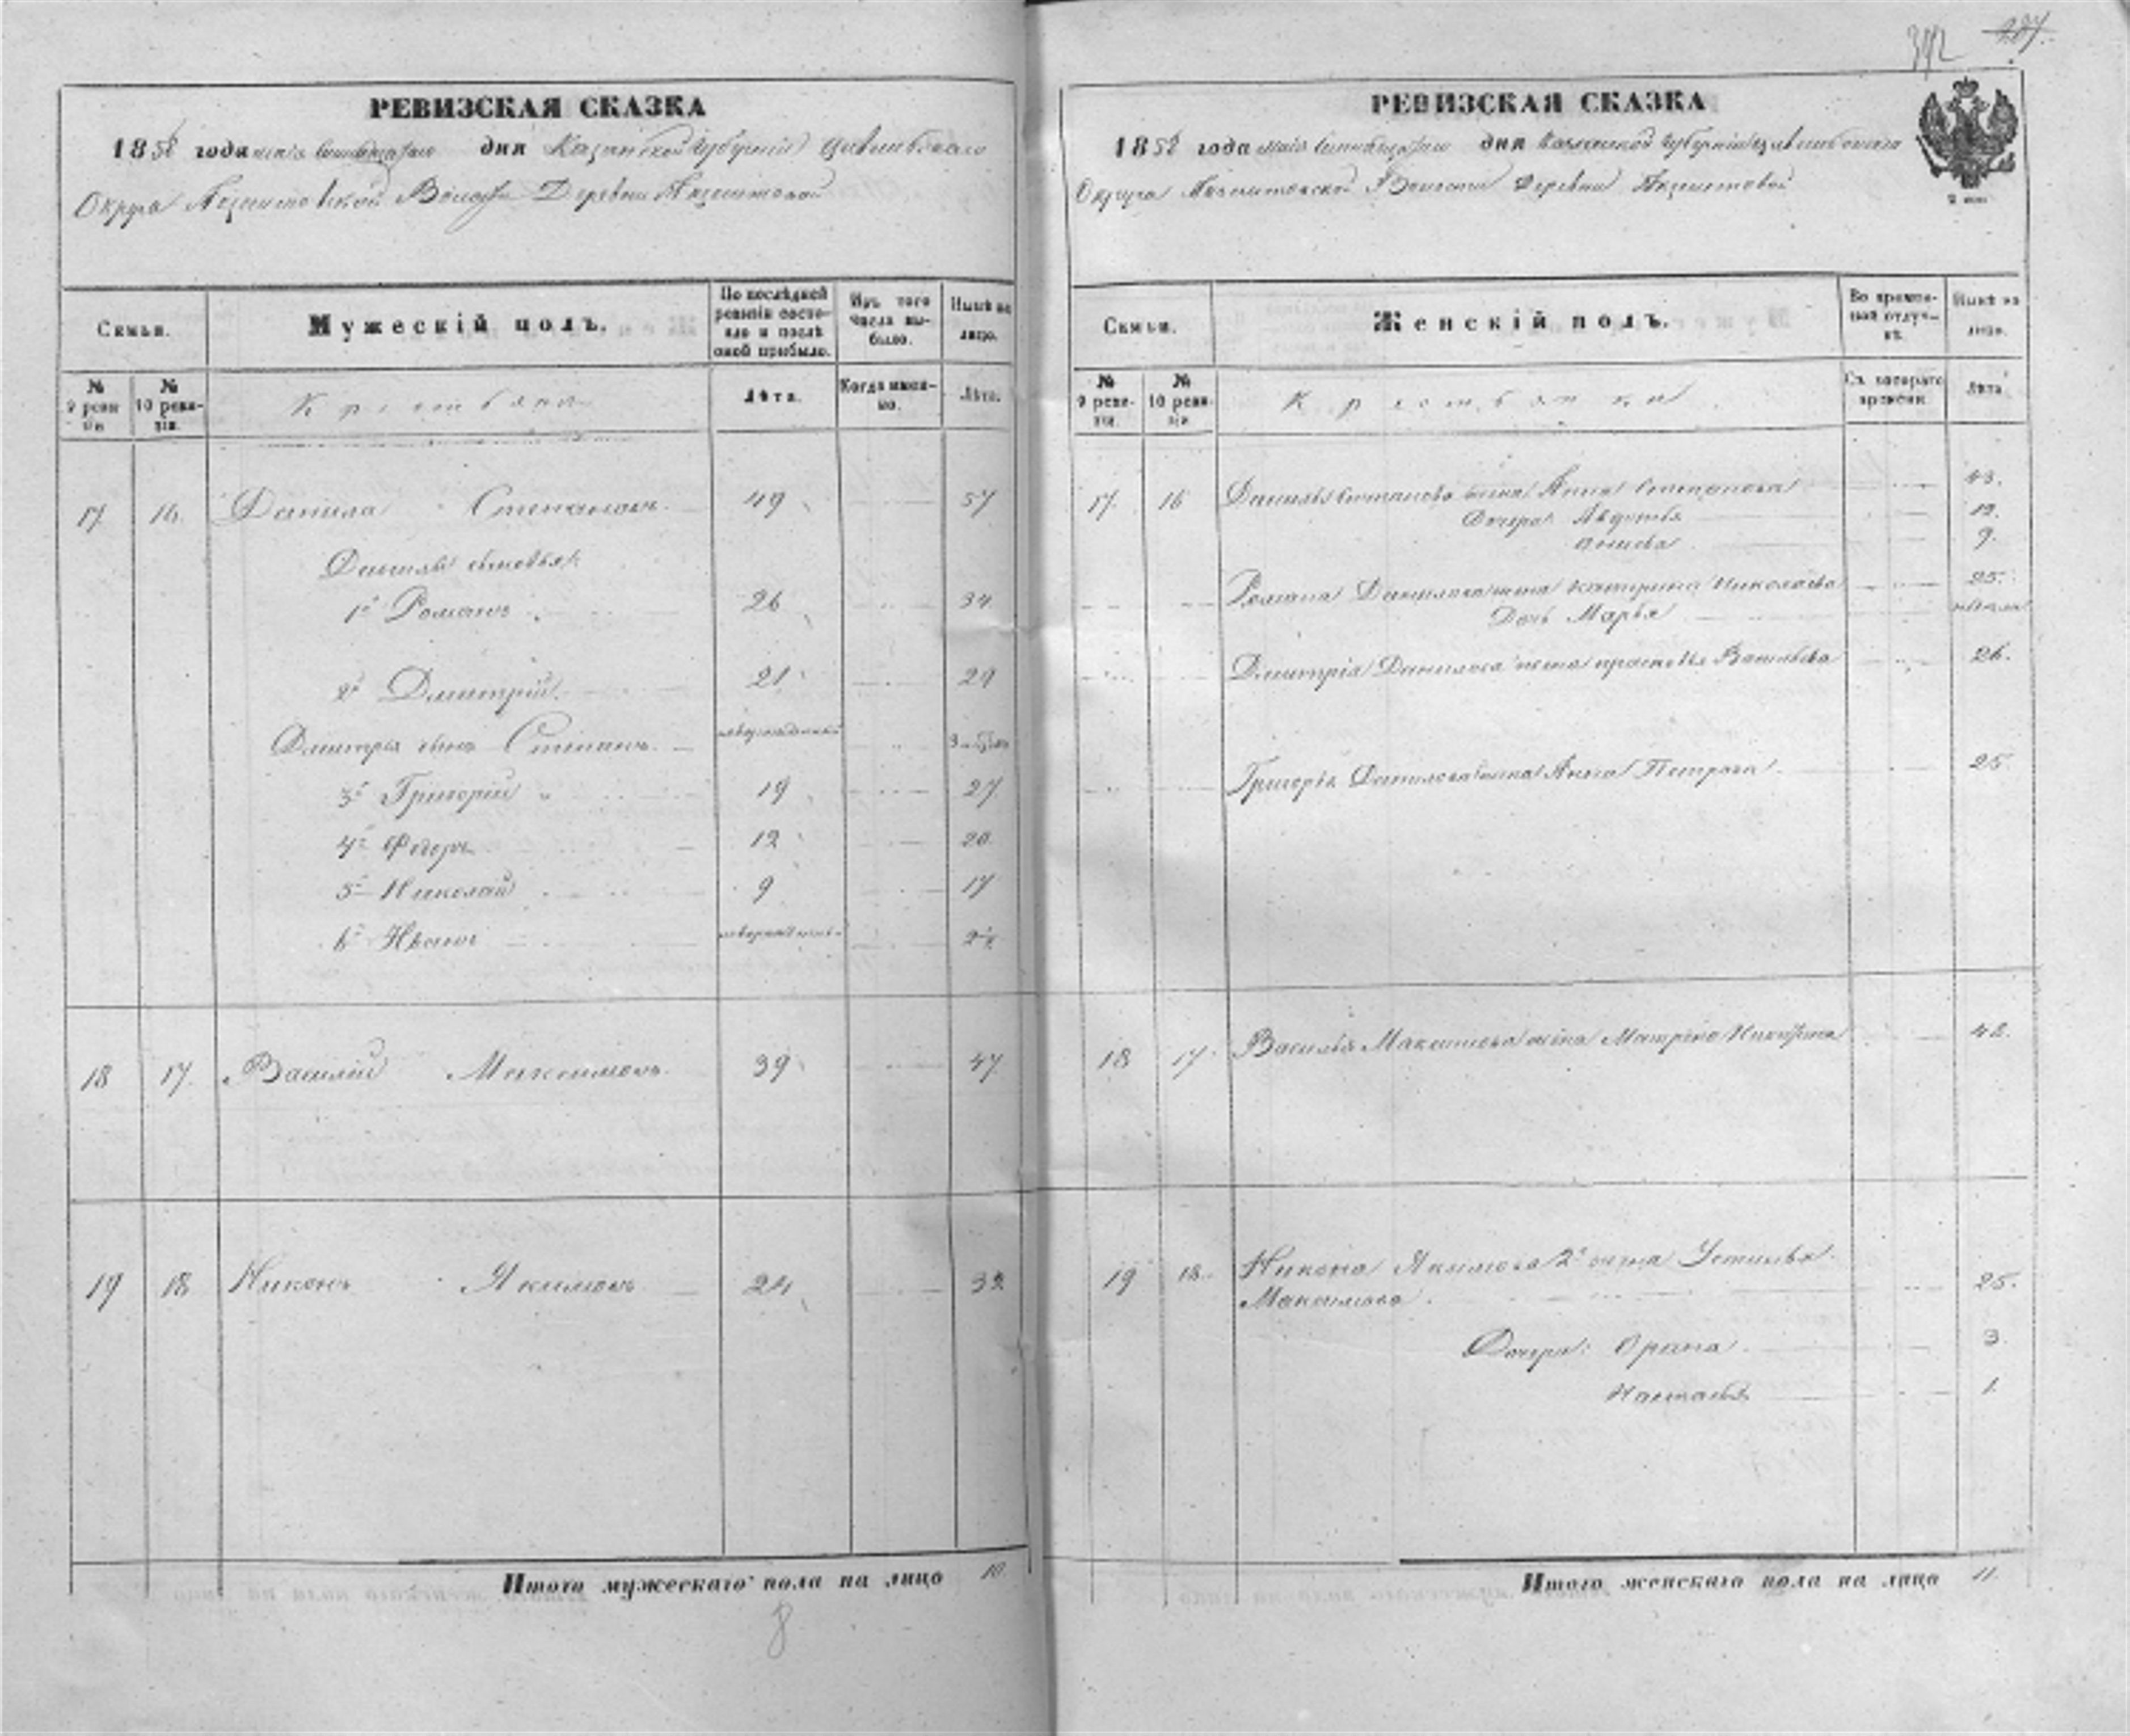 392 287
РЕВИЗСКАЯ СКАЗКА
1858 года маія дня Казанской Губерніи Цивильскаго
Округа Акзегитовской Волости Деревни Акзегитовой
Семьи.
Мужескій полъ.
По послѣдней ревизіи состояло и послѣ оной прибыло.
Изъ того числа выбыло.
Нынѣ на лицо.
№ 9 ревизіи.
№ 10 ревизіи.
Крестьяне
Лѣта.
Когда именно.
Лѣта.
17 16. Данила Степановъ 49 57
Данилы сыновья:
1й Романъ 26 34
2й Дмитрій 21 29
Дмитрія сынъ Степанъ
3й Григорій 19 27
4й Федоръ 12 20
5й Николай 9 17
6й Иванъ
18 17. Василій Максимовъ 39 47
19 18 Никонъ Якимовъ 24 32
Итого мужескаго пола на лицо 10
8
РЕВИЗСКАЯ СКАЗКА
1858 года маія дня Казанской Губерніи Цивильскаго
Округа Акзегитовской Волости Деревни Акзегитовой
Семьи.
Женскій полъ.
Во временной отлучкѣ.
Нынѣ на лицо.
№ 9 ревизіи.
№ 10 ревизіи.
Крестьянки
Съ котораго времени.
Лѣта
17. 16 Данилы Степанова жена Анна Степанова 43.
Дочери Авдотья 12.
9.
Романа Данилова жена Катерина Николаева 25.
Дочь Марья
Дмитрія Данилова жена Васильева 26.
Григорья Данилова жена Анна Петрова 25.
18 17. Василья Максимова жена Матрена 42.
19 18. Никона Якимова 2я жена Устинья
Максимова. 25.
Дочери: Орина 3.
Настасья 1.
Итого женскаго пола на лицо 11